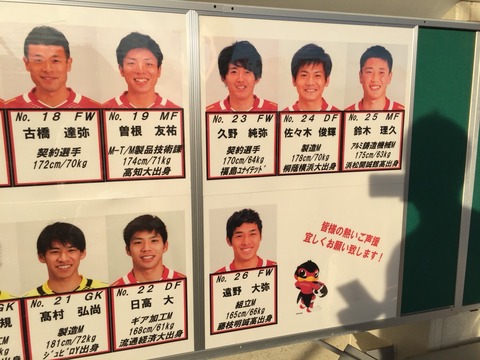 No. 18 FW
古橋 達弥
契約選手
172cm/70kg
No. 19 MF
曽根 友祐
M-T/M製品技術課
174cm/71kg
高知大出身
No. 23 FW
久野 純弥
契約選手
170cm/64kg
福島ユナイテッド
No. 24 DF
佐々木 俊輝
製造M
178cm/70kg
桐蔭横浜大出身
No. 25 MF
鈴木 理久
アルミ鋳造機械M
175cm/63kg
浜松開誠館高出身
規
No. 21 GK
髙村 弘尚
製造M
181cm/72kg
ジュビロY出身
No. 22 DF
日高 大
ギア加工M
168cm/61kg
流通経済大出身
No. 26 FW
遠野 大弥
組立M
165cm/66kg
藤枝明誠高出身
皆様の熱いご声援
宜しくお願い致します！